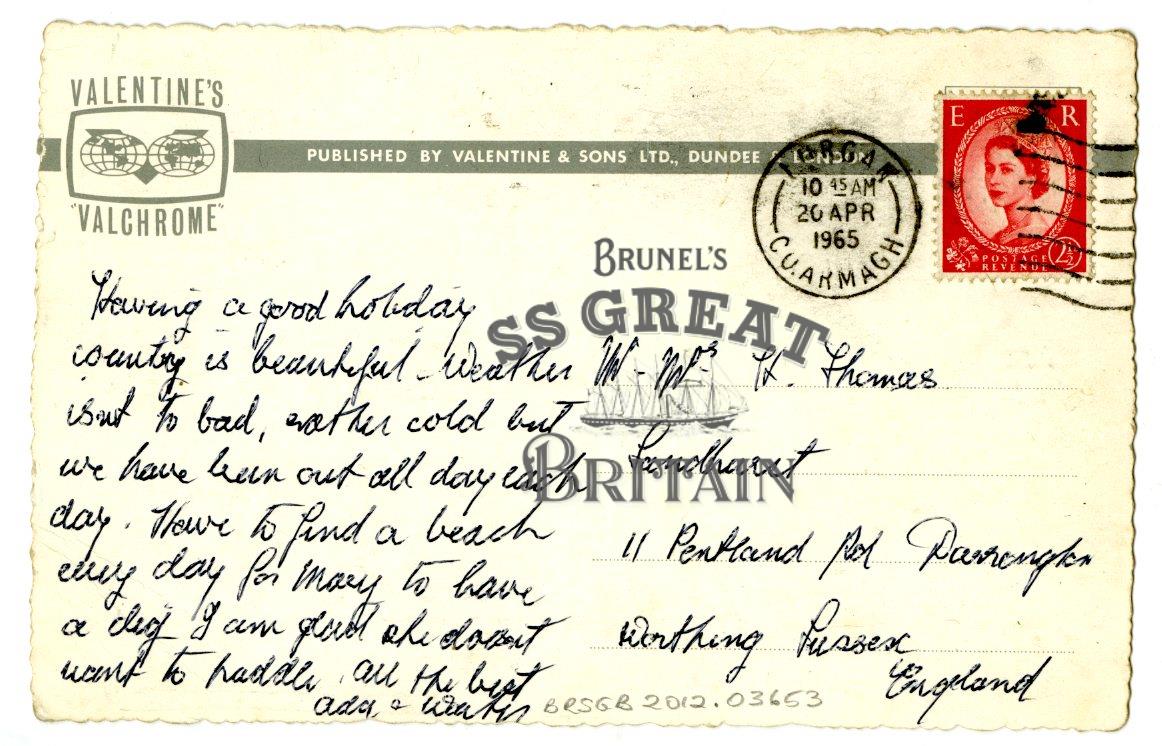 VALENTINE'S
"VALCHROME"
PUBLISHED BY VALENTINE & SONS LTD., DUNDEE & LONDON
LURGAN
10 45 AM
20 APR
1965
CO. ARMAGH
E R
POSTAGE
REVENUE
2½
BRUNEL'S
SS GREAT
BRITAIN
Having a good holiday
country is beautiful - Weather
isnt to bad, rather cold but
we have been out all day each
day. Have to find a beach
every day for Mary to have
a dig I am glad she doesnt
want to paddle. All the best
Ada & Walter
Mr - Mrs H. Thomas
Sandhurst
11 Pentland Rd Durrington
Worthing Sussex
England
BRSGB 2012.03653